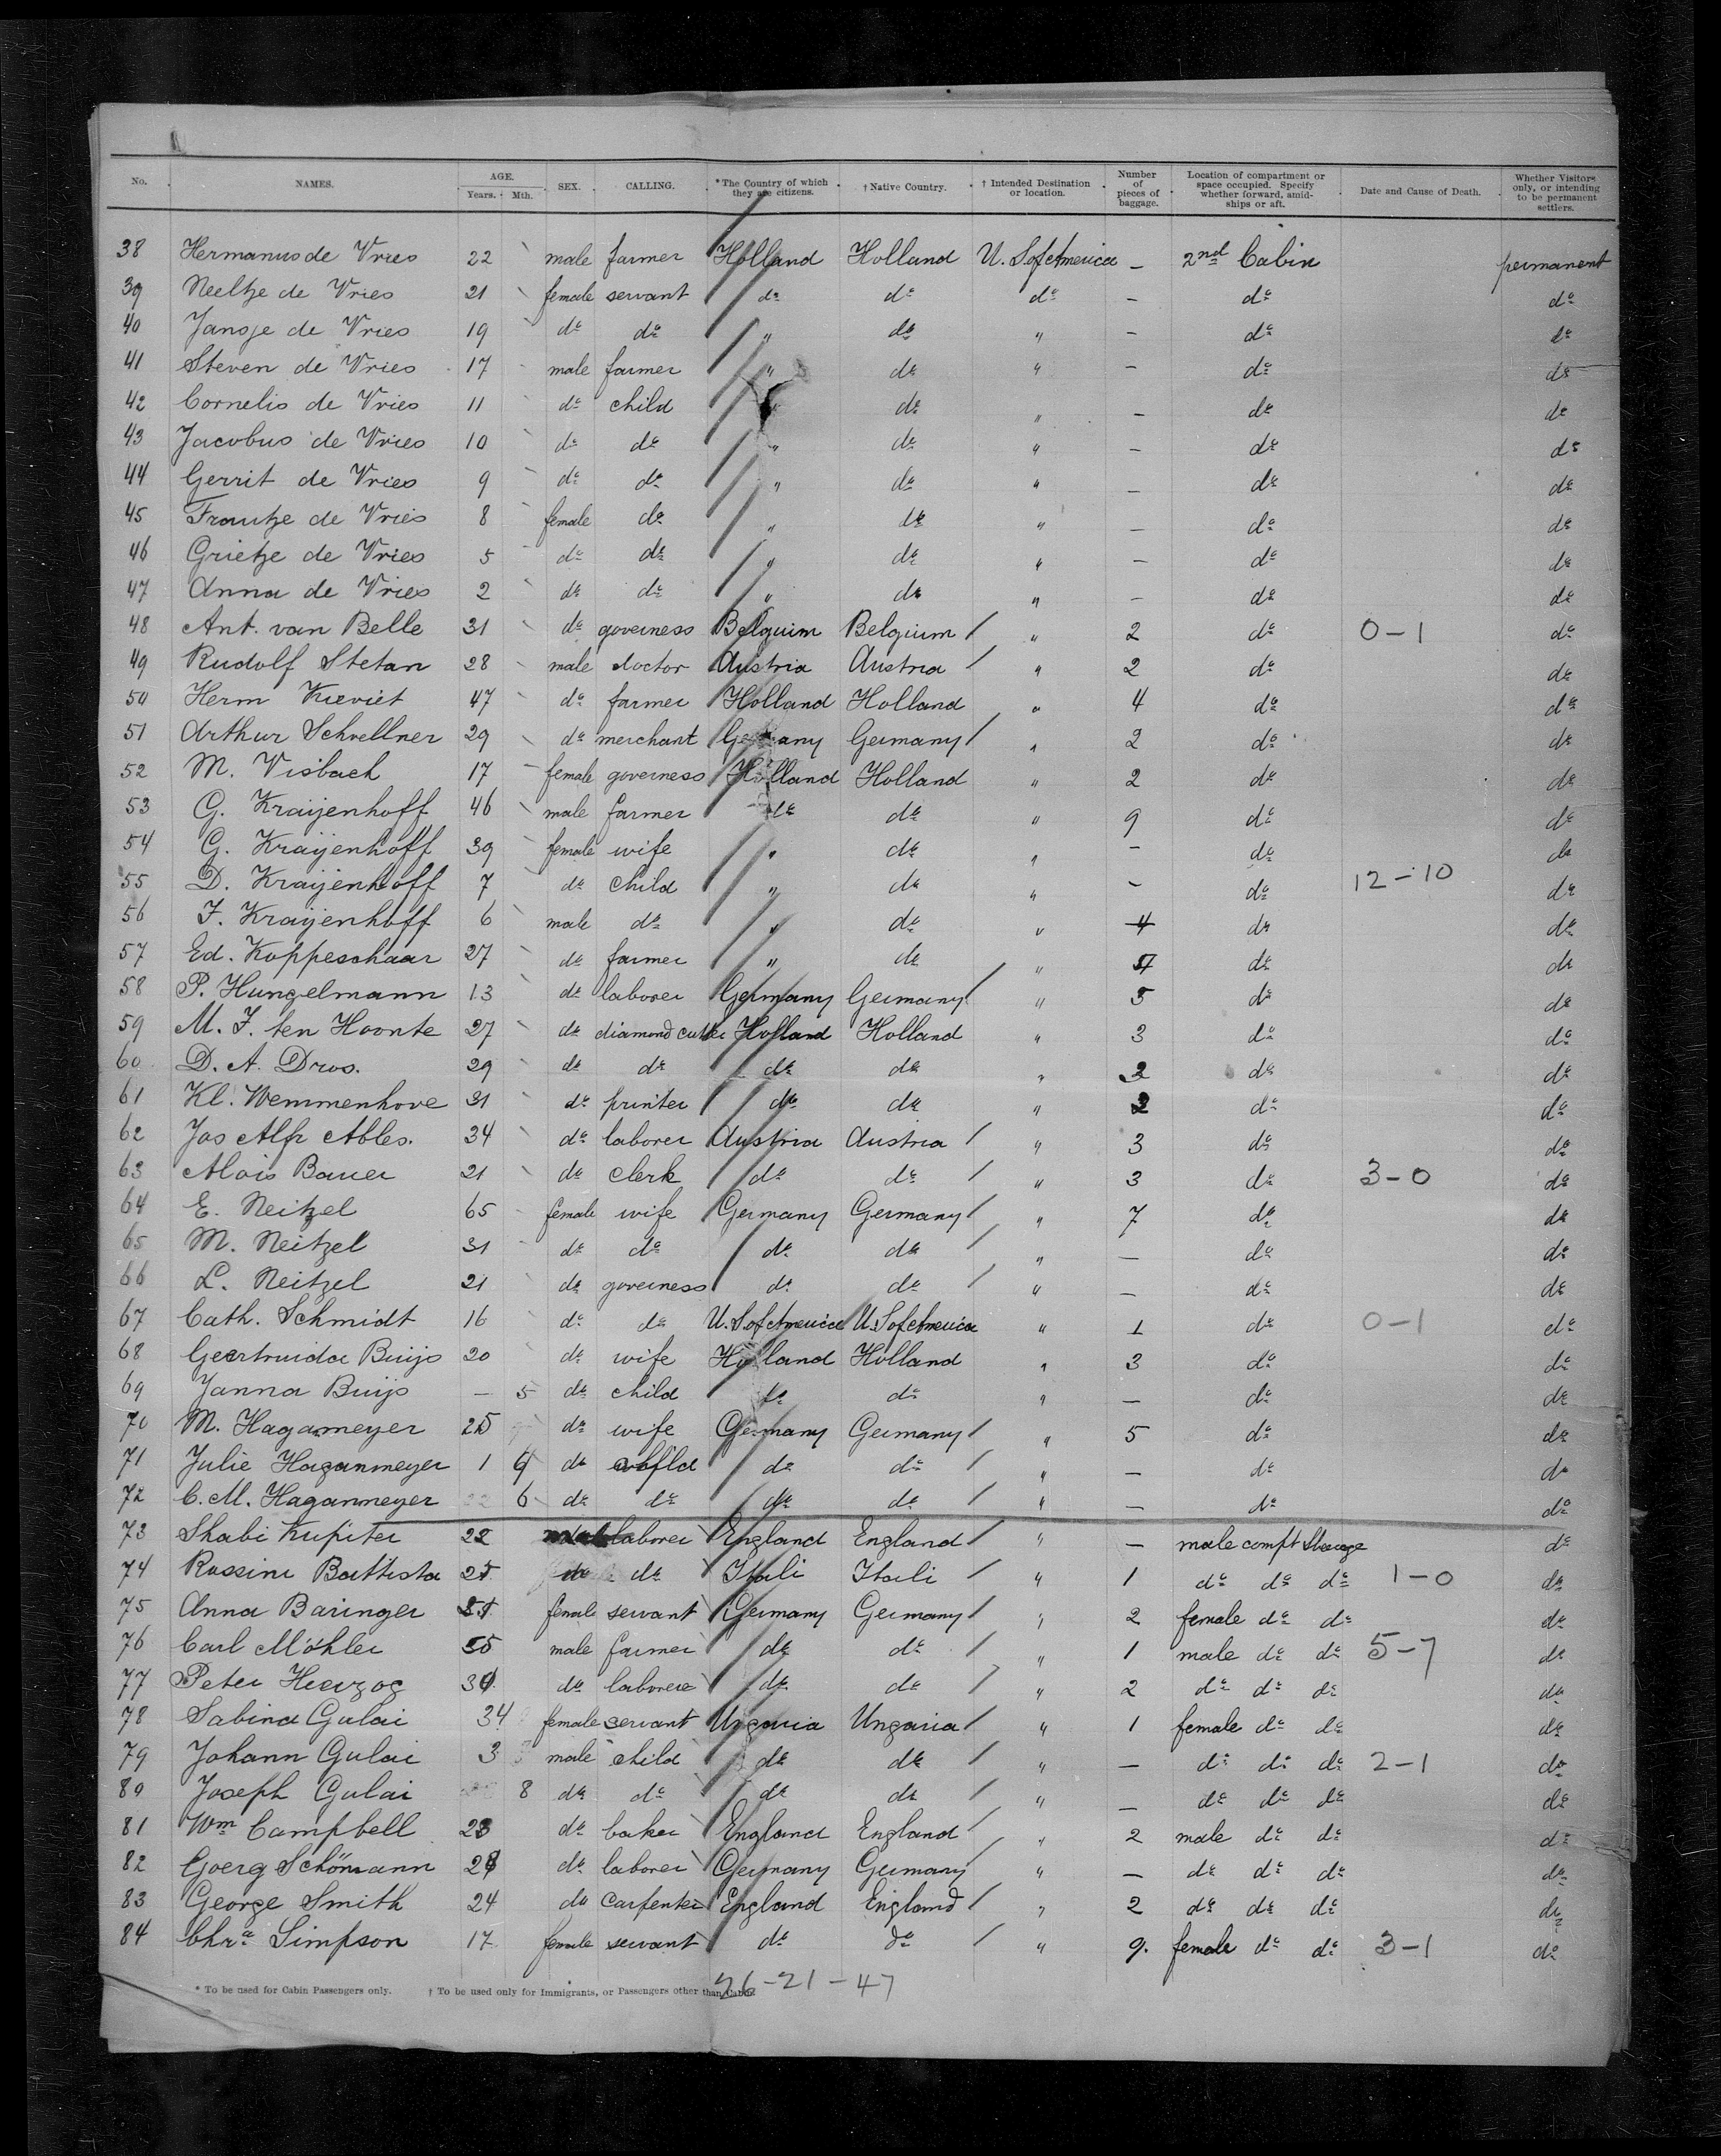 No. NAMES. AGE. Years. Mth. SEX. CALLING. *The Country of which they are citizens. †Native Country. †Intended Destination or location. Number of pieces of baggage. Location of compartment or space occupied. Specify whether forward, amidships or aft. Date and Cause of Death. Whether Visitors only, or intending to be permanent settlers.
38 Hermanus de Vries 22 male farmer Holland Holland U.S of America — 2nd Cabin permanent
39 Neeltje de Vries 21 female servant do do do — do do
40 Jansje de Vries 19 do do " do " — do do
41 Steven de Vries 17 male farmer " do " — do do
42 Cornelis de Vries 11 do child " do " — do do
43 Jacobus de Vries 10 do do " do " — do do
44 Gerrit de Vries 9 do do " do " — do do
45 Frautje de Vries 8 female do " do " — do do
46 Grietje de Vries 5 do do " do " — do do
47 Anna de Vries 2 do do " do " — do do
48 Ant. van Belle 31 do governess Belguim Belgium / " 2 do 0-1 do
49 Rudolf Stetan 28 male doctor Austria Austria / " 2 do do
50 Herm Kieviet 47 do farmer Holland Holland " 4 do do
51 Arthur Schvellner 29 do merchant Germany Germany / " 2 do do
52 M. Visbach 17 female governess Holland Holland " 2 do do
53 G. Kraijenhoff 46 male farmer do do " 9 do do
54 G. Kraijenhoff 39 female wife " do " — do do
55 D. Kraijenhoff 7 do child " do " — do 12-10 do
56 F. Kraijenhoff 6 male do " do " do do
57 Ed. Koppeschaar 27 do farmer " do " do do
58 P. Hungelmann 13 do laborer Germany Germany / " 5 do do
59 M. J. ten Hoonte 27 do diamond cutter Holland Holland " 3 do do
60 D. A. Dros. 29 do do do do " 2 do do
61 Kl. Wemmenhove 31 do printer do do " 2 do do
62 Jos Alfr Ables. 34 do laborer Austria Austria / " 3 do do
63 Alois Bauer 21 do clerk do do / " 3 do 3-0 do
64 E. Neitzel 65 female wife Germany Germany / " 7 do do
65 M. Neitzel 31 do do do do / " — do do
66 L. Neitzel 21 do governess do do / " — do do
67 Cath. Schmidt 16 do do U.S of America U.S of America " 1 do 0-1 do
68 Geertruida Buijs 20 do wife Holland Holland " 3 do do
69 Janna Buijs — 5 do child do do " — do do
70 M. Haganmeyer 25 do wife Germany Germany / " 5 do do
71 Julie Haganmeyer 1 do do do / " — do do
72 C. M. Haganmeyer 6 do do do do " — do do
73 Shabi Kupiter 22 laborer England England / " — male compt Steerage do
74 Rossini Battista 25 do do Itali Itali / " 1 do do do 1-0 do
75 Anna Baringer female servant Germany Germany / " 2 female do do do
76 Carl Möhler male farmer do do / " 1 male do do 5-7 do
77 Peter Herzog do laborer do do / " 2 do do do do
78 Sabina Gulai 34 female servant Ungaria Ungaria / " 1 female do do do
79 Johann Gulai 3 male child do do / " — do do do 2-1 do
80 Joseph Gulai 8 do do do do / " — do do do do
81 Wm Campbell 23 do baker England England / " 2 male do do do
82 Goerg Schömann do laborer Germany Germany / " — do do do do
83 George Smith 24 do carpenter England England / " 2 do do do do
84 Chra Simpson 17 female servant do do / " 9. female do do 3-1 do
* To be used for Cabin Passengers only. † To be used only for Immigrants, or Passengers other than Cabin. 26-21-47